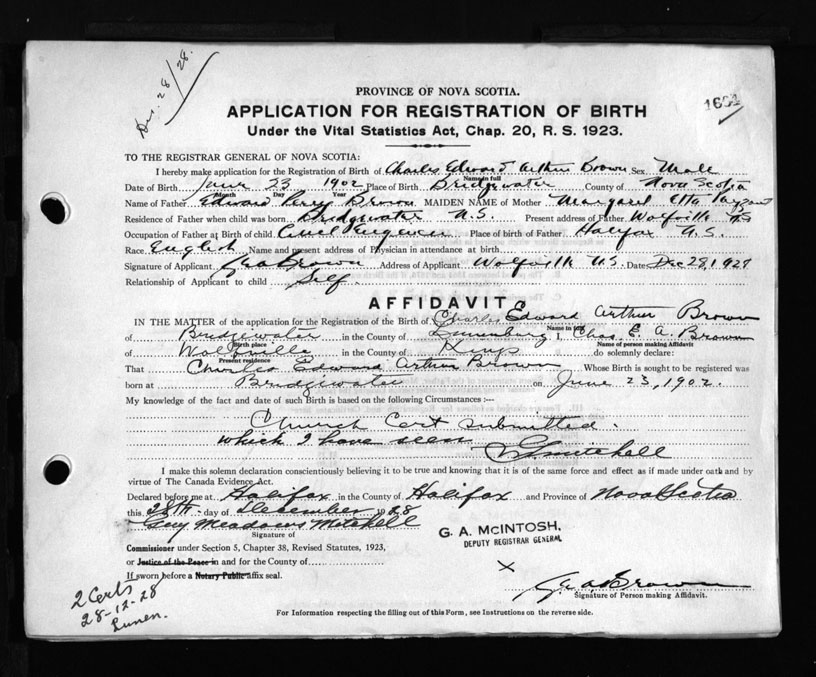 Dec. 28/28.
1604
PROVINCE OF NOVA SCOTIA.
APPLICATION FOR REGISTRATION OF BIRTH
Under the Vital Statistics Act, Chap. 20, R. S. 1923.
TO THE REGISTRAR GENERAL OF NOVA SCOTIA:
I hereby make application for the Registration of Birth of Charles Edward Arthur Brown Sex Male
Name in full
Date of Birth June 23 1902 Place of Birth Bridgewater County of Nova Scotia
Month Day Year
Name of Father Edward Percy Brown MAIDEN NAME of Mother Margaret Etta
Residence of Father when child was born Bridgewater N.S. Present address of Father Wolfville NS
Occupation of Father at Birth of child Civil Engineer Place of birth of Father Halifax N.S.
Race English Name and present address of Physician in attendance at birth
Signature of Applicant Brown Address of Applicant Wolfville NS. Date Dec 28, 1928
Relationship of Applicant to child Self.
AFFIDAVIT
IN THE MATTER of the application for the Registration of the Birth of Charles Edward Arthur Brown
Name in full
of Bridgewater in the County of Lunenburg I, Chas. E. A. Brown
Birth place Name of person making Affidavit
of Wolfville in the County of Kings do solemnly declare:
Present residence
That Charles Edward Arthur Brown Whose Birth is sought to be registered was
born at Bridgewater on June 23, 1902.
My knowledge of the fact and date of such Birth is based on the following Circumstances :—
Church Cert submitted.
which I have seen
Mitchell
I make this solemn declaration conscientiously believing it to be true and knowing that it is of the same force and effect as if made under oath and by
virtue of The Canada Evidence Act.
Declared before me at Halifax in the County of Halifax and Province of Nova Scotia
this 28th day of December 1928
Guy Meadows Mitchell
Signature of
G. A. McINTOSH,
DEPUTY REGISTRAR GENERAL
Commissioner under Section 5, Chapter 38, Revised Statutes, 1923,
or Justice of the Peace in and for the County of
If sworn before a Notary Public affix seal.
X
Brown
Signature of Person making Affidavit.
2 Certs
28-12-28
Lunen.
For Information respecting the filling out of this Form, see Instructions on the reverse side.